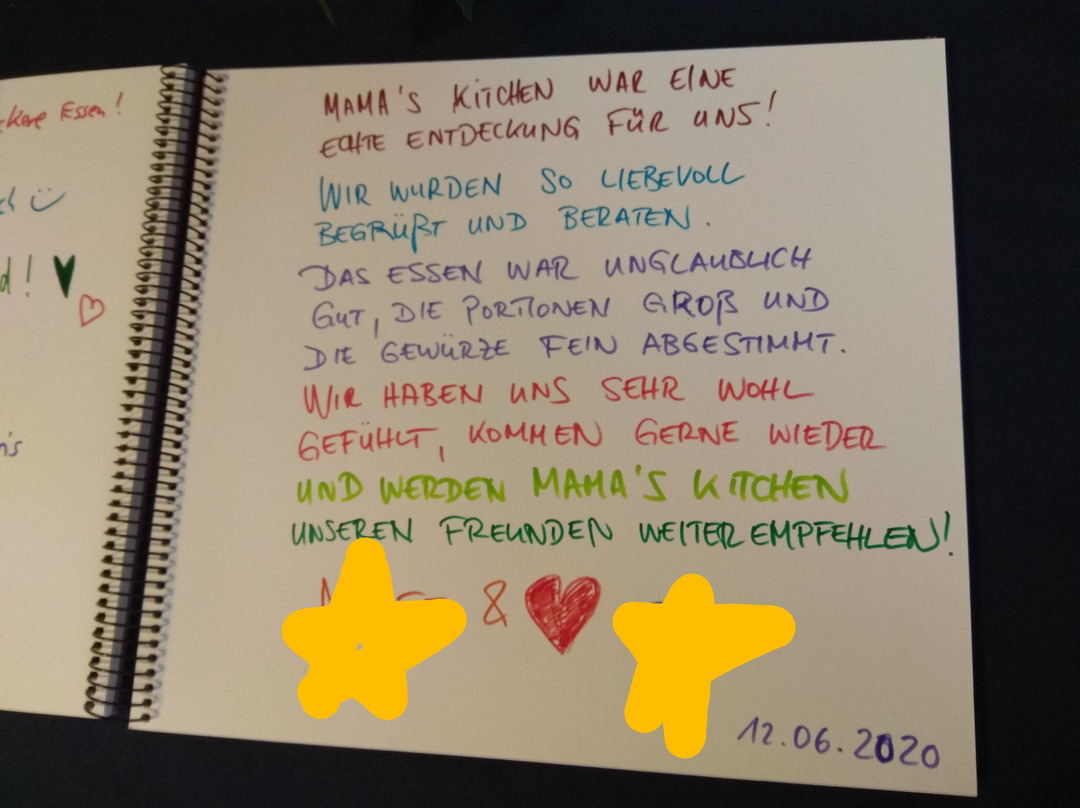 Essen!
d!
MAMA'S KITCHEN WAR EINE
ECHTE ENTDECKUNG FÜR UNS!
WIR WURDEN SO LIEBEVOLL
BEGRÜßT UND BERATEN.
DAS ESSEN WAR UNGLAUBLICH
GUT, DIE PORTIONEN GROß UND
DIE GEWÜRZE FEIN ABGESTIMMT.
WIR HABEN UNS SEHR WOHL
GEFÜHLT, KOMMEN GERNE WIEDER
UND WERDEN MAMA'S KITCHEN
UNSEREN FREUNDEN WEITEREMPFEHLEN!
&
12.06.2020